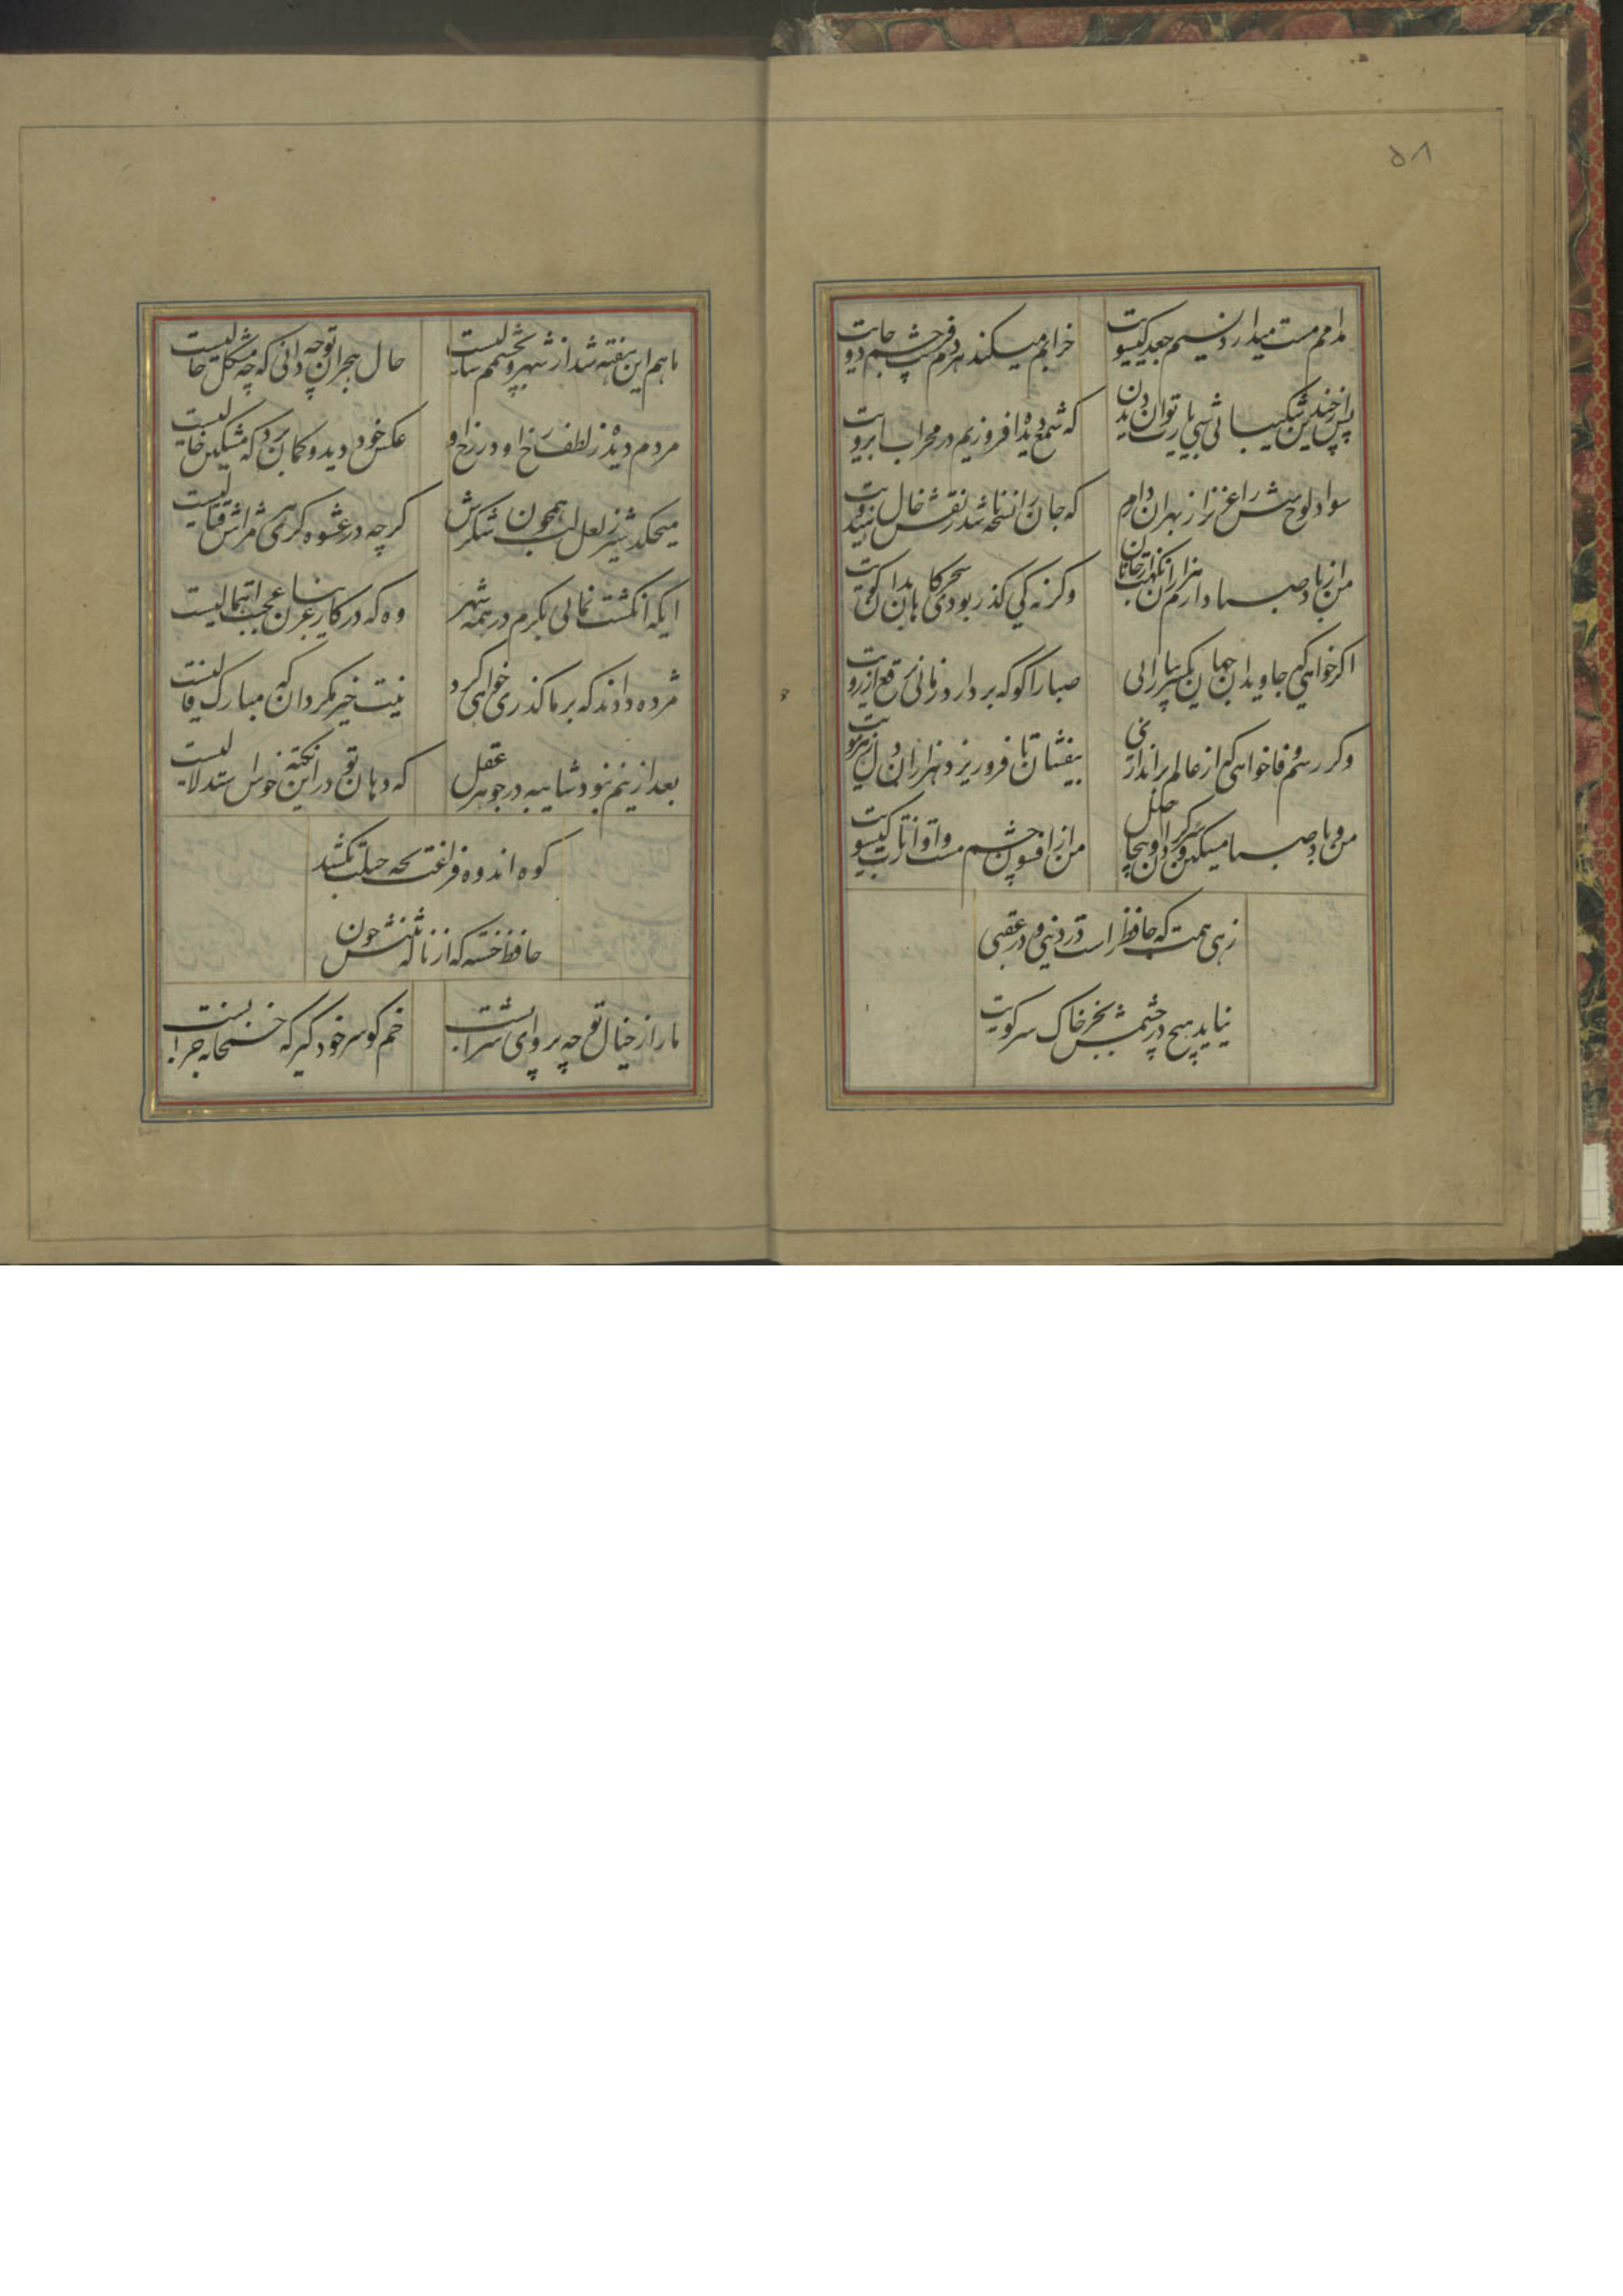 ۵۸
مدامم مست میدارد نسیم جعد کیسویت
خرابم میکند هر دم فریب چشم جادویت
پس از چندین شکیبائی شبی یا رب توان دیدن
که شمع دیده افروزیم در محراب ابرویت
سواد لوح بینش را عزیز از بهر آن دارم
که جان را نسخه باشد ز نقش خال هندویت
من از باد صبا دارم هزاران نکهت از جانان
وکرنه کی کذر بودی سحرکاهان بدان کویت
اکر خواهی که جاویدان جهان یکسر بیارائی
صبا را کو که بردارد زمانی برقع از رویت
وکر رسم فنا خواهی که از عالم براندازی
بیفشان تا فرو ریزد هزاران دل ز هر مویت
من و باد صبا مسکین دو سرکردان بیحاصل
من از افسون چشمت مست و او از تاب کیسویت
زهی همت که حافظ راست در دنیی و در عقبی
نیاید هیچ در چشمش بجز خاک سر کویت
ماهم این هفته شد از شهر و بچشمم سالیست
حال هجران تو چه دانی که چه مشکل حالیست
مردم دیده ز لطف رخ او در رخ او
عکس خود دید و کمان برد که مشکین خالیست
میچکد شیر ز لعل لب همچون شکرش
کرچه در عشوه کری هر مژه اش قتالیست
ایکه انکشت نمائی بکرم در همه شهر
وه که در کار غریبان عجبت اهمالیست
مژده دادند که بر ما کذری خواهی کرد
نیت خیر مکردان که مبارک فالیست
بعد ازینم نبود شایبه در جوهر عقل
که دهان تو در این نکته خوش استدلالیست
کوه اندوه فراقت بچه حیلت بکشد
حافظ خسته که از ناله تنش چون
ما را ز خیال تو چه پروای شرابست
خم کو سر خود کیر که خمخانه خرابست